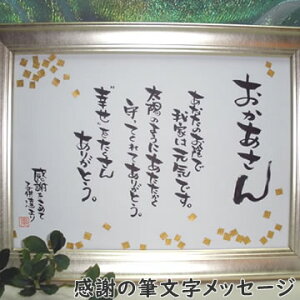 おかあさん
あなたのお陰で
我家は元気です。
太陽のようにあたたかく
守ってくれてありがとう。
幸せをたくさん
ありがとう。
感謝をこめて
子供達より
感謝の筆文字メッセージ